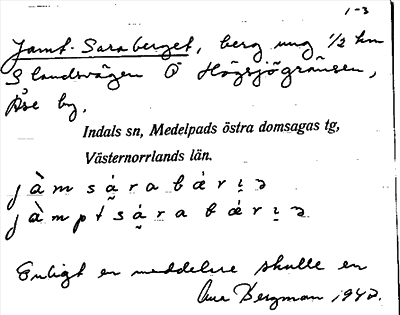 1-3
Jämt-Saraberget, berg ung 1/2 km
S landsvägen O Högsjögränsen,
Åse by.
Indals sn, Medelpads östra domsagas tg,
Västernorrlands län.
Enligt en meddelare skulle en
Bergman 1942.